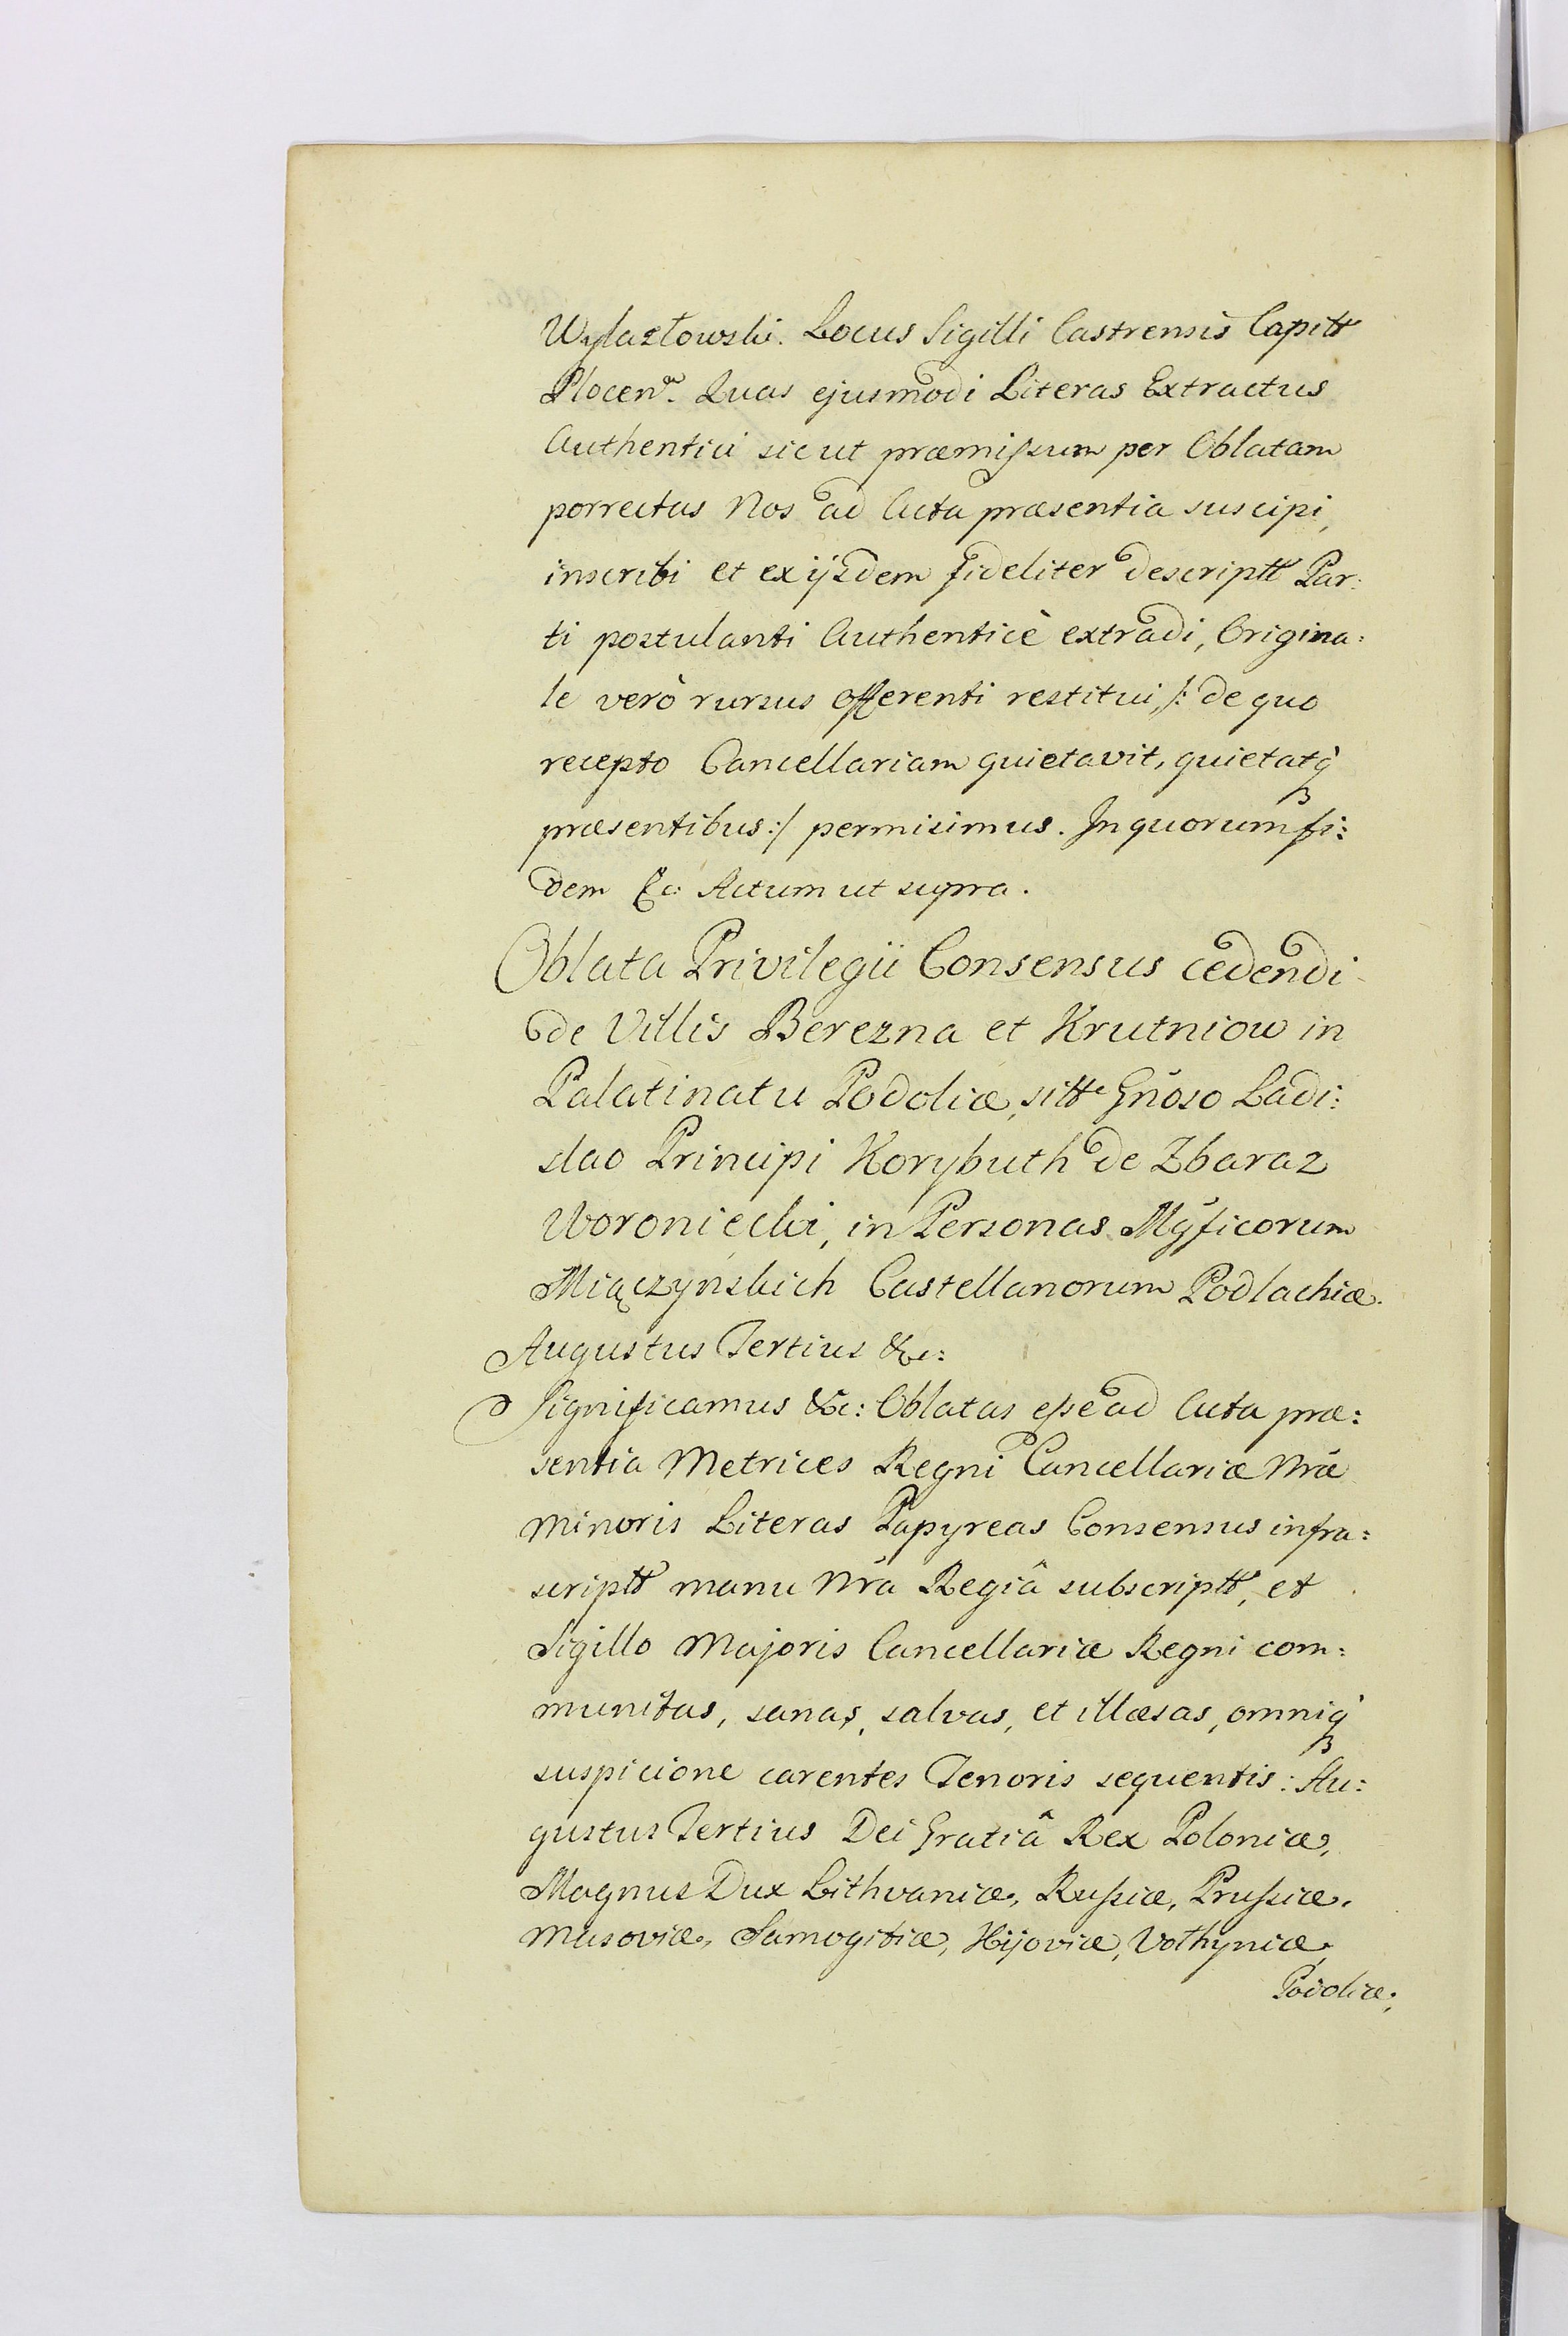 Wylazłowski. Locus Sigilli Castrensis Capitt
Plocen. Quas ejusmodi Literas Extractus
Authentici sicut præmissum per Oblatam
porrectas Nos ad Acta præsentia suscipi,
inscribi et ex ijsdem fideliter descriptt Par:
ti postulanti Authenticè extradi, Origina:
le verò rursus offerenti restitui, /: de quo
recepto Cancellariam quietavit, quietatq̀
præsentibus :/ permisimus. In quorum fi:
dem &c: Actum ut supra.
Oblata Privilegii Consensus cedendi
de Villis Berezna et Krutniow in
Palatinatu Podoliæ, sitt Gñoso Ladi:
slao Principi Korybuth de Zbaraz
Woroniecki, in Personas Mgficorum
Miączynskich Castellanorum Podlachiæ.
Augustus Tertius &c:
Significamus &c: Oblatas esse ad Acta præ:
sentia Metrices Regni Cancellariæ Nræ
Minoris Literas Papyreas Consensus infra:
scriptt manu Nra Regiâ subscriptt, et
Sigillo Majoris Cancellariæ Regni com:
munitas, sanas, salvas, et illæsas, omniq̀
suspicione carentes Tenoris sequentis: Au:
gustus Tertius Dei Gratiâ Rex Poloniæ,
Magnus Dux Lithvaniæ, Russiæ, Prussiæ,
Masoviæ, Samogitiæ, Kijoviæ, Volhyniæ,
Podoliæ,